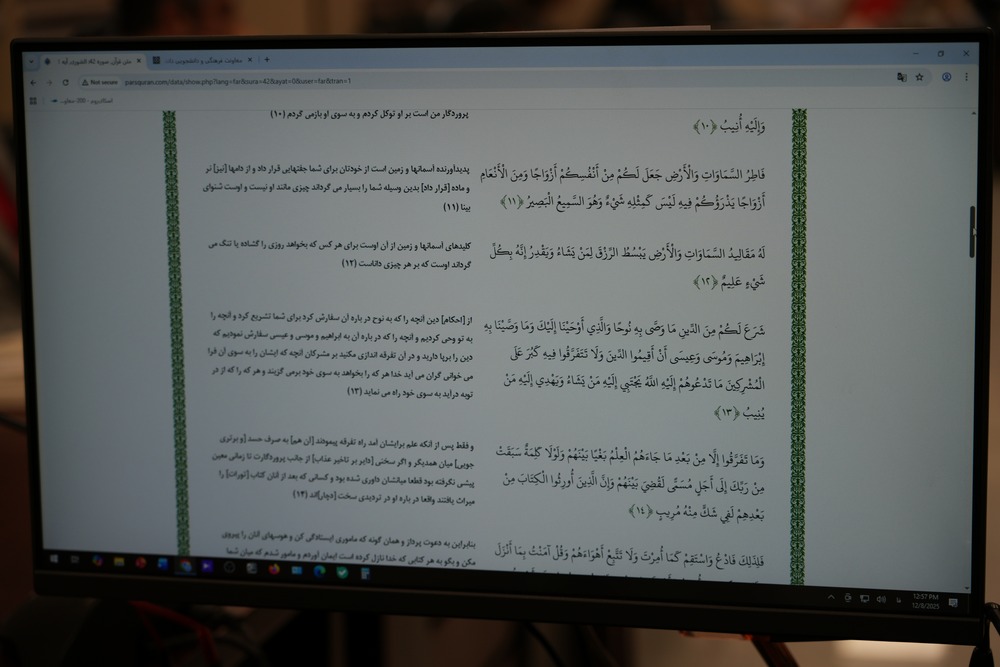 متن قرآن سوره 42: الشوری آیه 1
معاونت فرهنگی و دانشجویی دان
Not secure
parsquran.com/data/show.php?lang=far&sura=42&ayat=0&user=far&tran=1
وَإِلَيْهِ أُنِيبُ ﴿۱۰﴾
پروردگار من است بر او توکل کردم و به سوی او بازمی گردم (۱۰)
فَاطِرُ السَّمَاوَاتِ وَالْأَرْضِ جَعَلَ لَكُمْ مِنْ أَنْفُسِكُمْ أَزْوَاجًا وَمِنَ الْأَنْعَامِ
أَزْوَاجًا يَذْرَؤُكُمْ فِيهِ لَيْسَ كَمِثْلِهِ شَيْءٌ وَهُوَ السَّمِيعُ الْبَصِيرُ ﴿۱۱﴾
پدیدآورنده آسمانها و زمین است از خودتان برای شما جفتهایی قرار داد و از دامها [نیز] نر
و ماده [قرار داد] بدین وسیله شما را بسیار می گرداند چیزی مانند او نیست و اوست شنوای
بینا (۱۱)
لَهُ مَقَالِيدُ السَّمَاوَاتِ وَالْأَرْضِ يَبْسُطُ الرِّزْقَ لِمَنْ يَشَاءُ وَيَقْدِرُ إِنَّهُ بِكُلِّ
شَيْءٍ عَلِيمٌ ﴿۱۲﴾
کلیدهای آسمانها و زمین از آن اوست برای هر کس که بخواهد روزی را گشاده یا تنگ می
گرداند اوست که بر هر چیزی داناست (۱۲)
شَرَعَ لَكُمْ مِنَ الدِّينِ مَا وَصَّى بِهِ نُوحًا وَالَّذِي أَوْحَيْنَا إِلَيْكَ وَمَا وَصَّيْنَا بِهِ
إِبْرَاهِيمَ وَمُوسَى وَعِيسَى أَنْ أَقِيمُوا الدِّينَ وَلَا تَتَفَرَّقُوا فِيهِ كَبُرَ عَلَى
الْمُشْرِكِينَ مَا تَدْعُوهُمْ إِلَيْهِ اللَّهُ يَجْتَبِي إِلَيْهِ مَنْ يَشَاءُ وَيَهْدِي إِلَيْهِ مَنْ
يُنِيبُ ﴿۱۳﴾
از [احکام] دین آنچه را که به نوح در باره آن سفارش کرد برای شما تشریع کرد و آنچه را
به تو وحی کردیم و آنچه را که در باره آن به ابراهیم و موسی و عیسی سفارش نمودیم که
دین را برپا دارید و در آن تفرقه اندازی مکنید بر مشرکان آنچه که ایشان را به سوی آن فرا
می خوانی گران می آید خدا هر که را بخواهد به سوی خود برمی گزیند و هر که را که از در
توبه درآید به سوی خود راه می نماید (۱۳)
وَمَا تَفَرَّقُوا إِلَّا مِنْ بَعْدِ مَا جَاءَهُمُ الْعِلْمُ بَغْيًا بَيْنَهُمْ وَلَوْلَا كَلِمَةٌ سَبَقَتْ
مِنْ رَبِّكَ إِلَى أَجَلٍ مُسَمًّى لَقُضِيَ بَيْنَهُمْ وَإِنَّ الَّذِينَ أُورِثُوا الْكِتَابَ مِنْ
بَعْدِهِمْ لَفِي شَكٍّ مِنْهُ مُرِيبٍ ﴿۱۴﴾
و فقط پس از آنکه علم برایشان آمد راه تفرقه پیمودند [آن هم] به صرف حسد [و برتری
جویی] میان همدیگر و اگر سخنی [دایر بر تاخیر عذاب] از جانب پروردگارت تا زمانی معین
پیشی نگرفته بود قطعا میانشان داوری شده بود و کسانی که بعد از آنان کتاب [تورات] را
میراث یافتند واقعا در باره او در تردیدی سخت [دچار]اند (۱۴)
فَلِذَلِكَ فَادْعُ وَاسْتَقِمْ كَمَا أُمِرْتَ وَلَا تَتَّبِعْ أَهْوَاءَهُمْ وَقُلْ آمَنْتُ بِمَا أَنْزَلَ
بنابراین به دعوت پرداز و همان گونه که ماموری ایستادگی کن و هوسهای آنان را پیروی
مکن و بگو به هر کتابی که خدا نازل کرده است ایمان آوردم و مامور شدم که میان شما
12:57 PM
12/8/2025